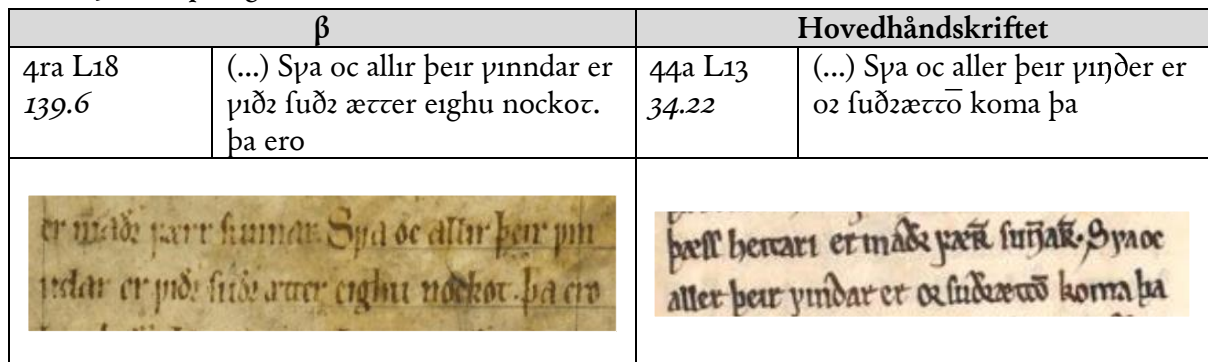 β
Hovedhåndskriftet
4ra L18
139.6
(...) Sƿa oc allır þeır ƿınndar er
ƿıðꝛ ſuðꝛ ætter eıghu nockoꞇ.
þa ero
44a L13
34.22
(...) Sƿa oc aller þeır ƿıŋðer er
oꝛ ſuðꝛættō koma þa
er maðꝛ ƿærr sumar. Sƿa oc allır þeır ƿın
ndar er ƿıðꝛ ſuðꝛ ætter eıghu nockoꞇ. þa ero
þæſſ heıtarı er maðꝛ ƿær̄ ſuṁar̄. Sƿa oc
aller þeır ƿındar er oꝛ ſuðꝛættō koma þa